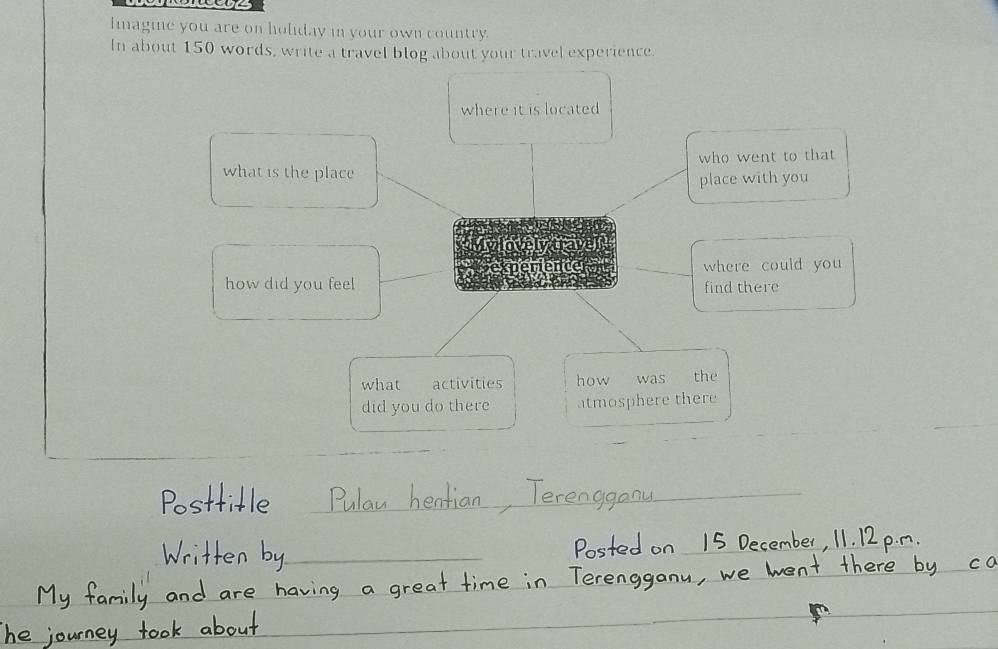 Imagine you are on holiday in your own country.
In about 150 words, write a travel blog about your travel experience.
where it is located
what is the place
who went to that
place with you
My lovely travel
experience
how did you feel
where could you
find there
what activities
did you do there
how was the
atmosphere there
Posttitle Pulau hentian, Terengganu
Written by
Posted on 15 December, 11.12 p.m.
My family and are having a great time in Terengganu, we went there by ca
The journey took about